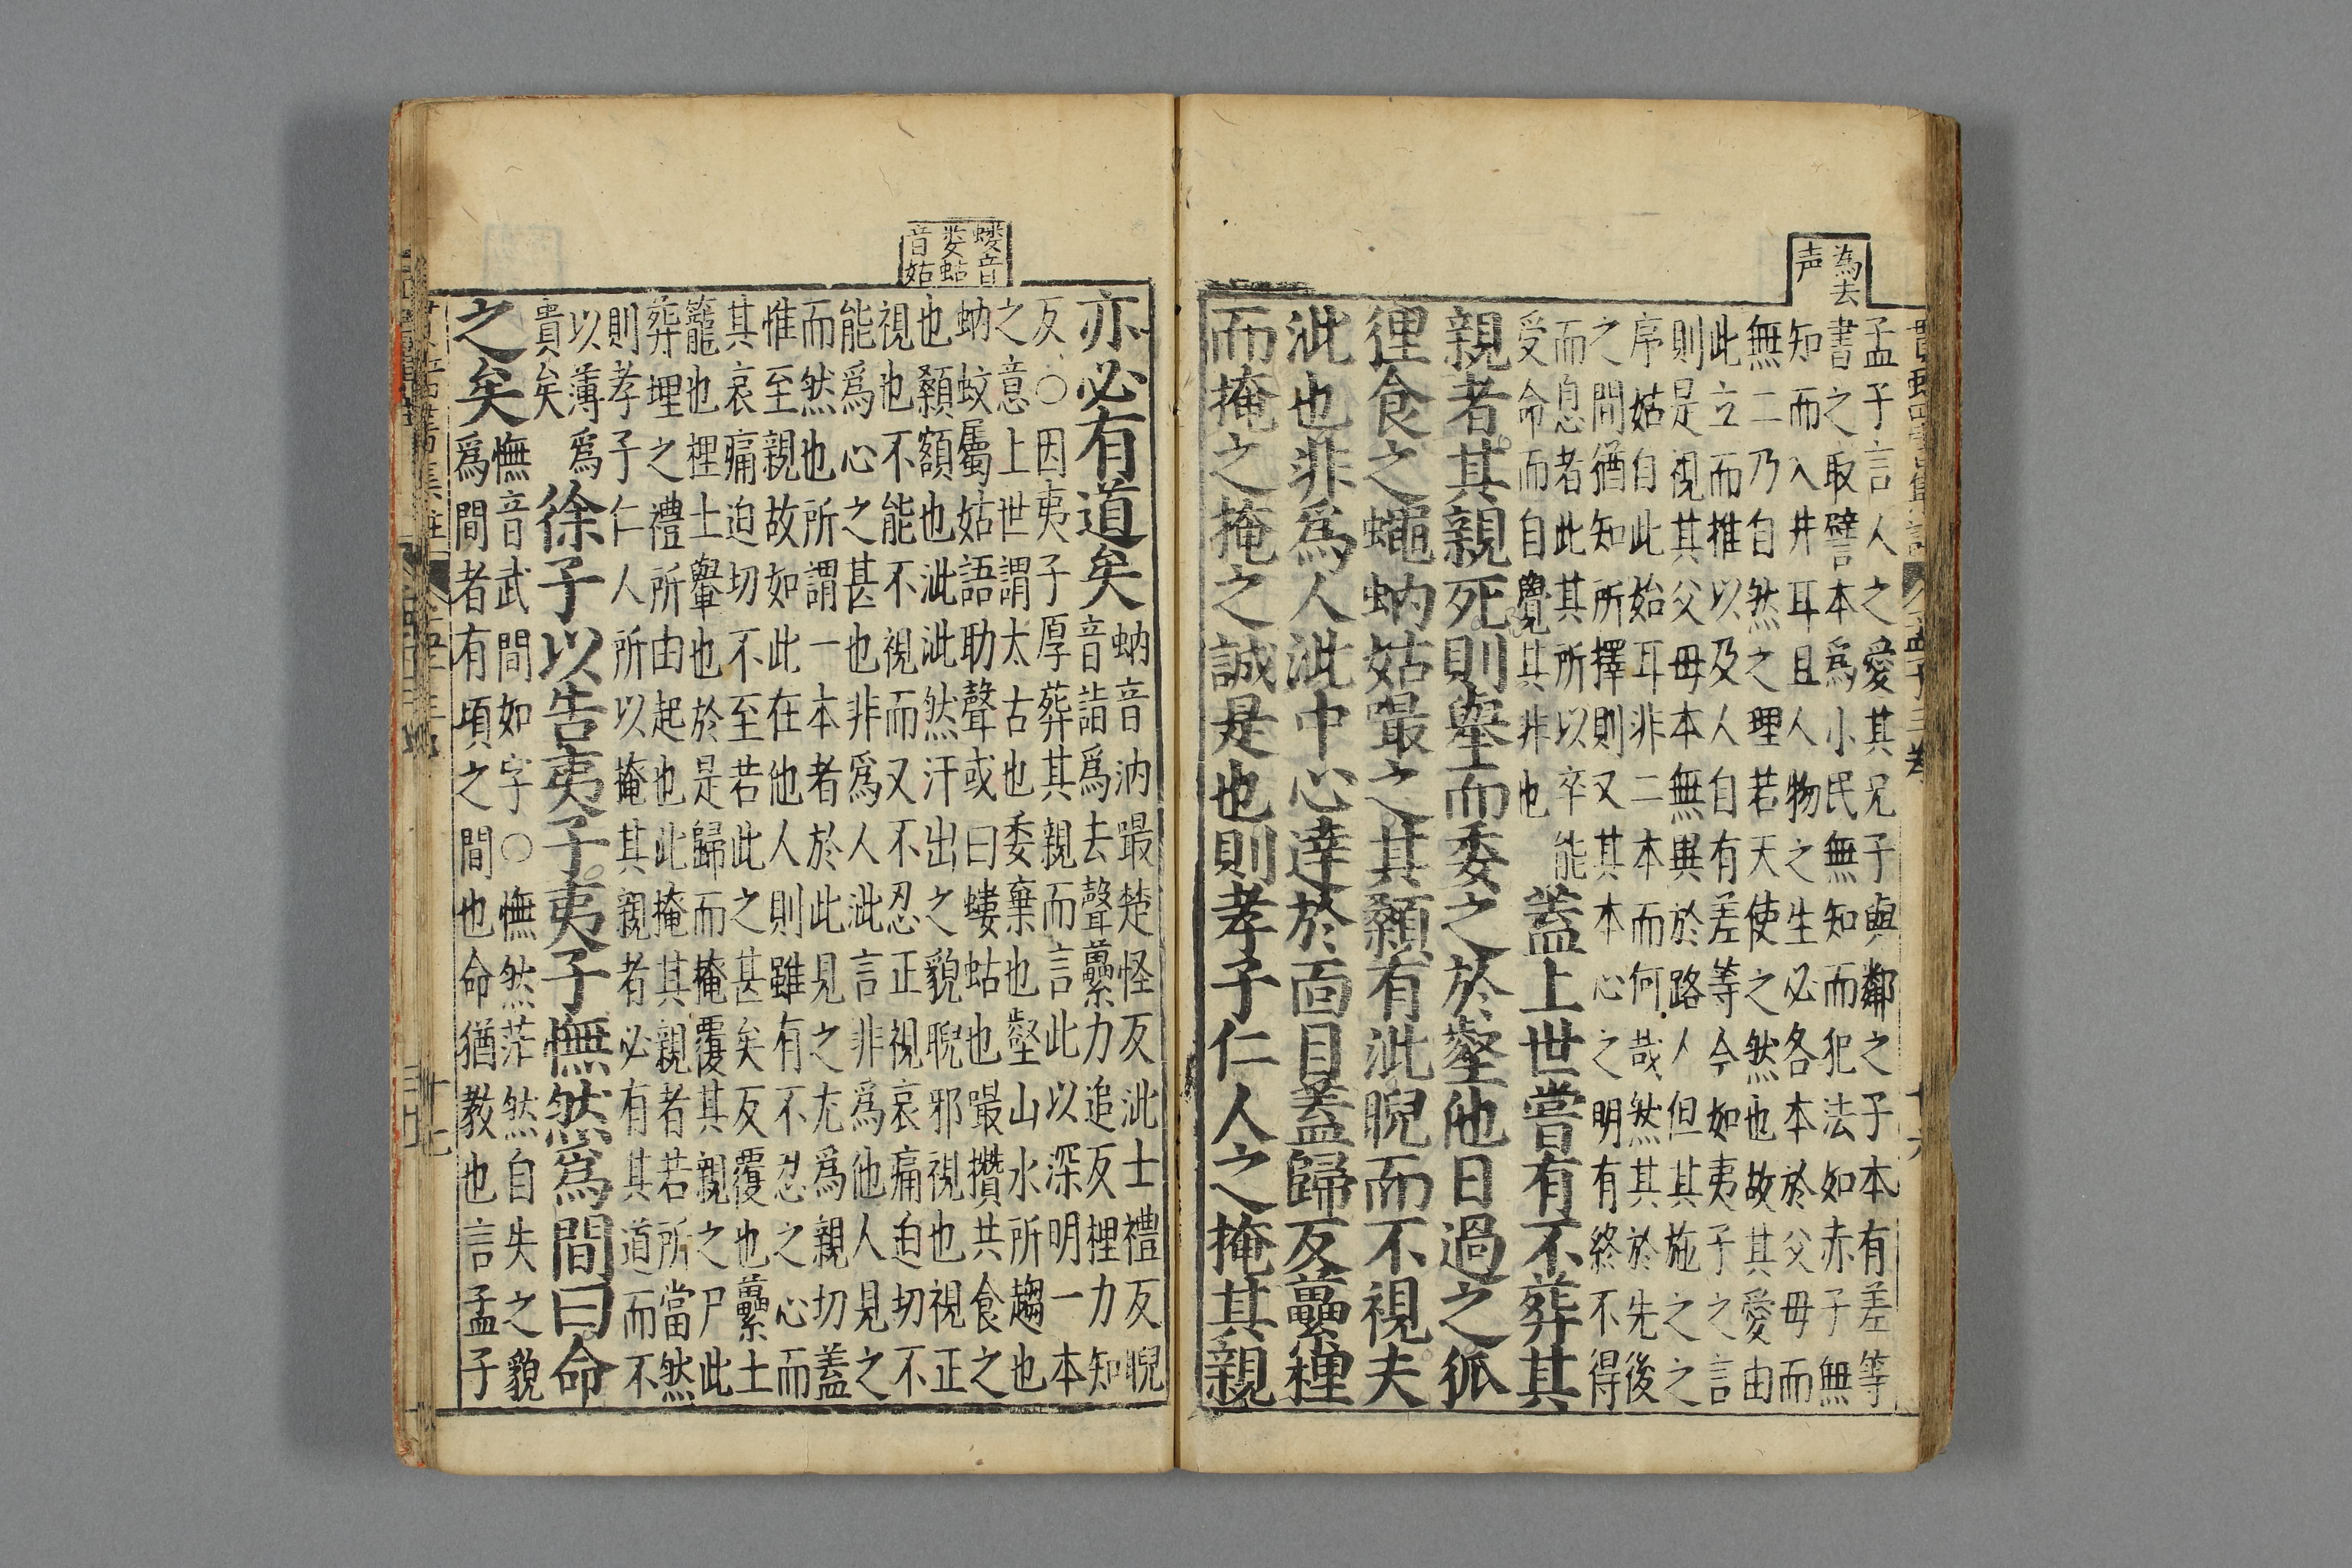 為去
声
孟子言人之愛其兄子與鄰之子本有差等
書之取譬本爲小民無知而犯法如赤子無
知而入井耳且人物之生必各本於父母而
無二乃自然之理若天使之然也故其愛由
此立而推以及人自有差等今如夷子之言
則是視其父母本無異於路人但其施之之
序姑自此始耳非二本而何哉然其於先後
之間猶知所擇則又其本心之明有終不得
而息者此其所以卒能
受命而自覺其非也
蓋上世嘗有不葬其
親者其親死則舉而委之於壑他日過之狐
狸食之蠅蚋姑嘬之其顙有泚睨而不視夫
泚也非爲人泚中心達於面目蓋歸反虆梩
而掩之掩之誠是也則孝子仁人之掩其親
螻音
娄蛄
音姑
亦必有道矣
蚋音汭嘬楚怪反泚士禮反睨
音詣爲去聲虆力追反梩力知
反○因夷子厚葬其親而言此以深明一本
之意上世謂太古也委棄也壑山水所趨也
蚋蚊屬姑語助聲或曰螻蛄也嘬攢共食之
也顙額也泚泚然汗出之貌睨邪視也視正
視也不能不視而又不忍正視哀痛迫切不
能爲心之甚也非爲人泚言非爲他人見之
而然也所謂一本者於此見之尤爲親切蓋
惟至親故如此在他人則雖有不忍之心而
其哀痛迫切不至若此之甚矣反覆也虆土
籠也梩土轝也於是歸而掩覆其親之尸此
葬埋之禮所由起也此掩其親者若所當然
則孝子仁人所以掩其親者必有其道而不
以薄爲
貴矣
徐子以告夷子夷子憮然爲間曰命
之矣
憮音武間如字○憮然茫然自失之貌
爲間者有頃之間也命猶教也言孟子